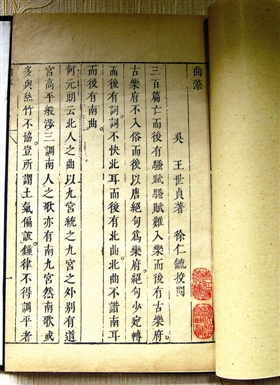 曲藻
吳 王世貞著 徐仁毓校閱
三百篇亡而後有騷賦騷賦難入樂而後有古樂府
古樂府不入俗而後以唐絕句爲樂府絕句少宛轉
而後有詞詞不快北耳而後有北曲北曲不諧南耳
而後有南曲
何元朗云北人之曲以九宮統之九宮之外別有道
宮高平般涉三調南人之歌亦有南九宮然南歌或
多與絲竹不協豈所謂土氣偏詖鍾律不得調平者